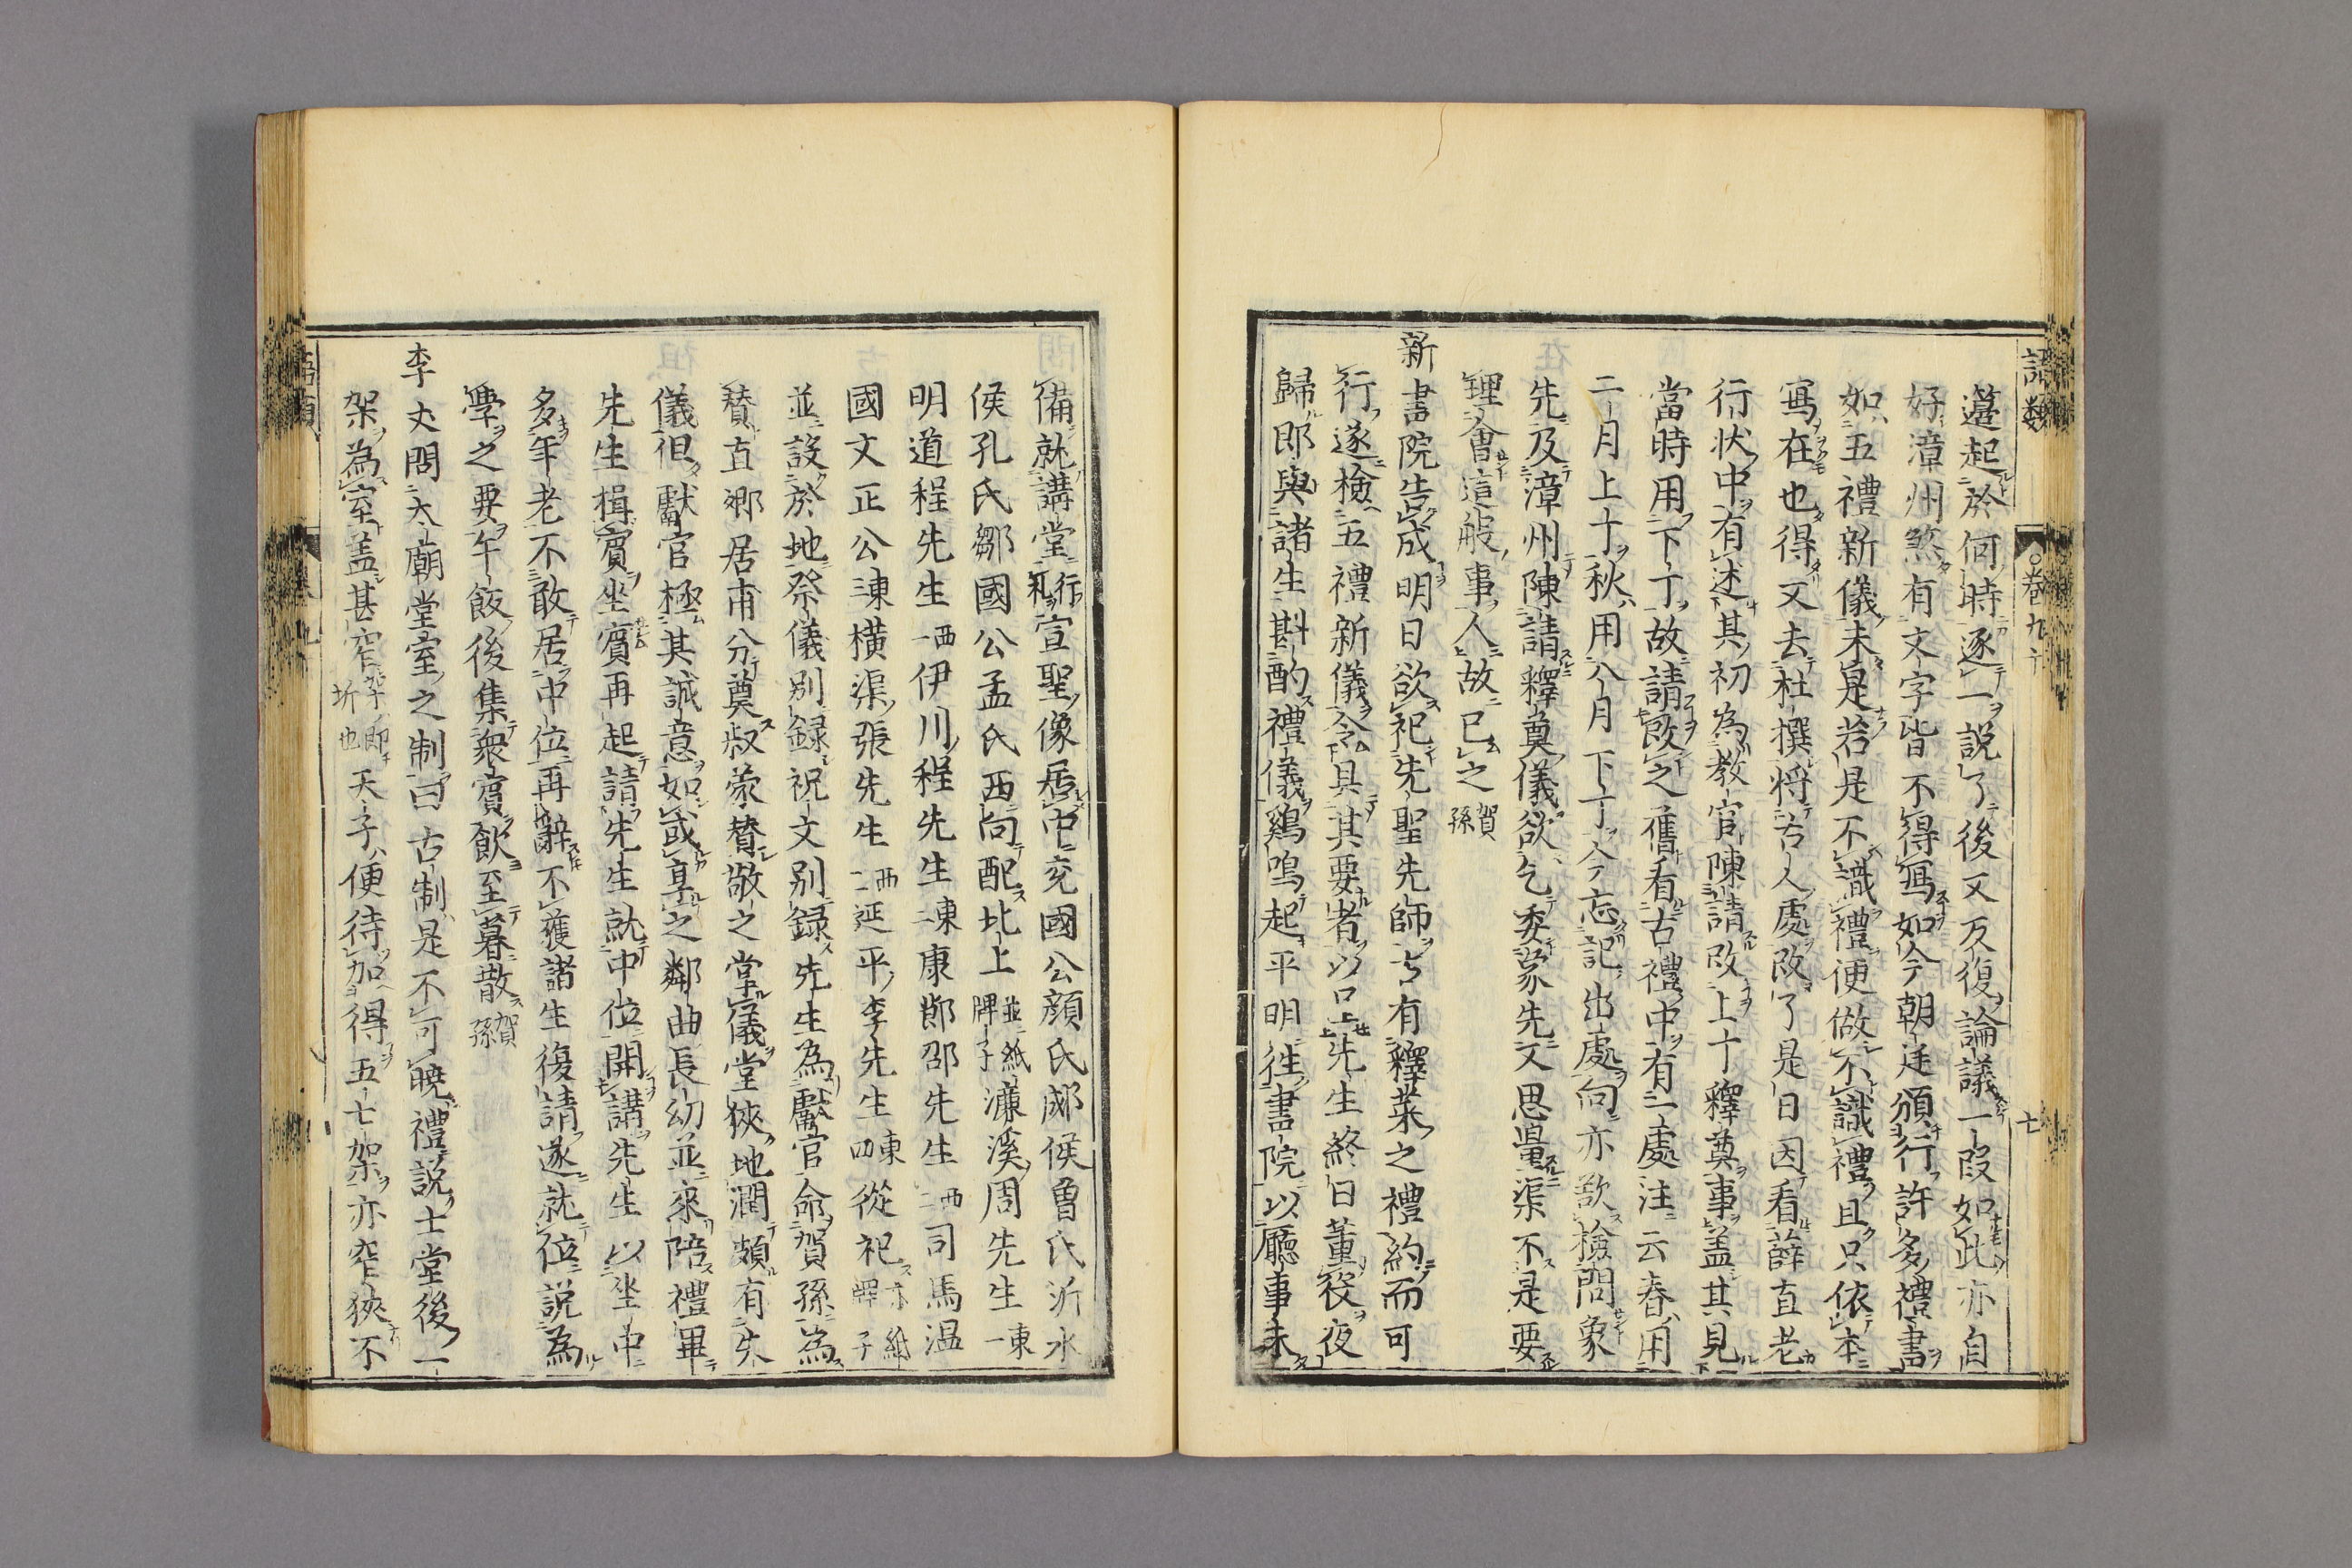 語類 卷九十 七
籩起於何時逐一說了後又反復論議一段如此亦自
好漳州煞有文字皆不得寫如今朝廷頒行許多禮書
如五禮新儀未是若是不識禮便做不識禮且只依本
寫在也得又去杜撰將古人處改了是日因看薛直老
行狀中有述其初為教官陳請改上丁釋奠事盖其見
當時用下丁故請改之舊看古禮中有一處注云春用
二月上丁秋用八月下丁今忘記出處向亦欲檢問象
先及漳州陳請釋奠儀欲乞委象先又思量渠不是要
理會這般事人故已之 賀孫
新書院告成明日欲祀先聖先師古有釋菜之禮約而可
行遂檢五禮新儀令具其要者以呈先生終日董役夜
歸即與諸生斟酌禮儀鷄鳴起平明往書院以廳事未
備就講堂行礼宣聖像居中兖國公顔氏郕侯曾氏沂水
侯孔氏鄒國公孟氏西向配北上 並紙牌子 濂溪周先生 東一
明道程先生 西一 伊川程先生 東二 康節邵先生 西二 司馬温
國文正公 東三 横渠張先生 西三 延平李先生 東四 從祀 亦紙牌子
並設於地祭儀别録祝文别録先生為獻官命賀孫為
賛直卿居甫分奠叔蒙賛敬之掌儀堂狹地潤頗有失
儀但獻官極其誠意如或享之鄰曲長幼並來陪禮畢
先生揖賓坐賓再起請先生就中位開講先生以坐中
多年老不敢居中位再辭不獲諸生復請遂就位説為
學之要午飯後集衆賓飲至暮散 賀孫
李丈問太廟堂室之制曰古制是不可曉禮説士堂後一
架為室盖甚窄 架即圻也 天子便待加得五七架亦窄狹不